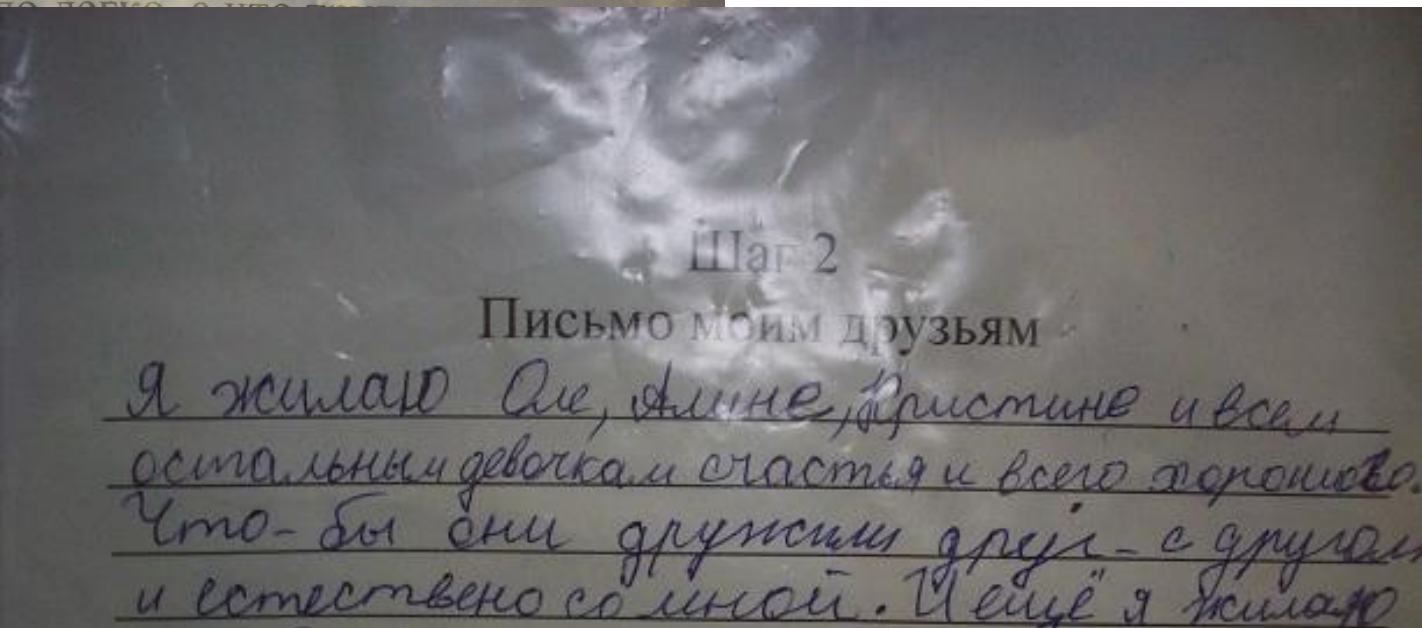 Шаг 2
Письмо моим друзьям
Я жилаю Оле, Алине, Кристине и всем
остальным девочкам счастья и всего хорошово.
Что-бы они дружили друг-с другом
и естествено со мной. И ещё я жилаю